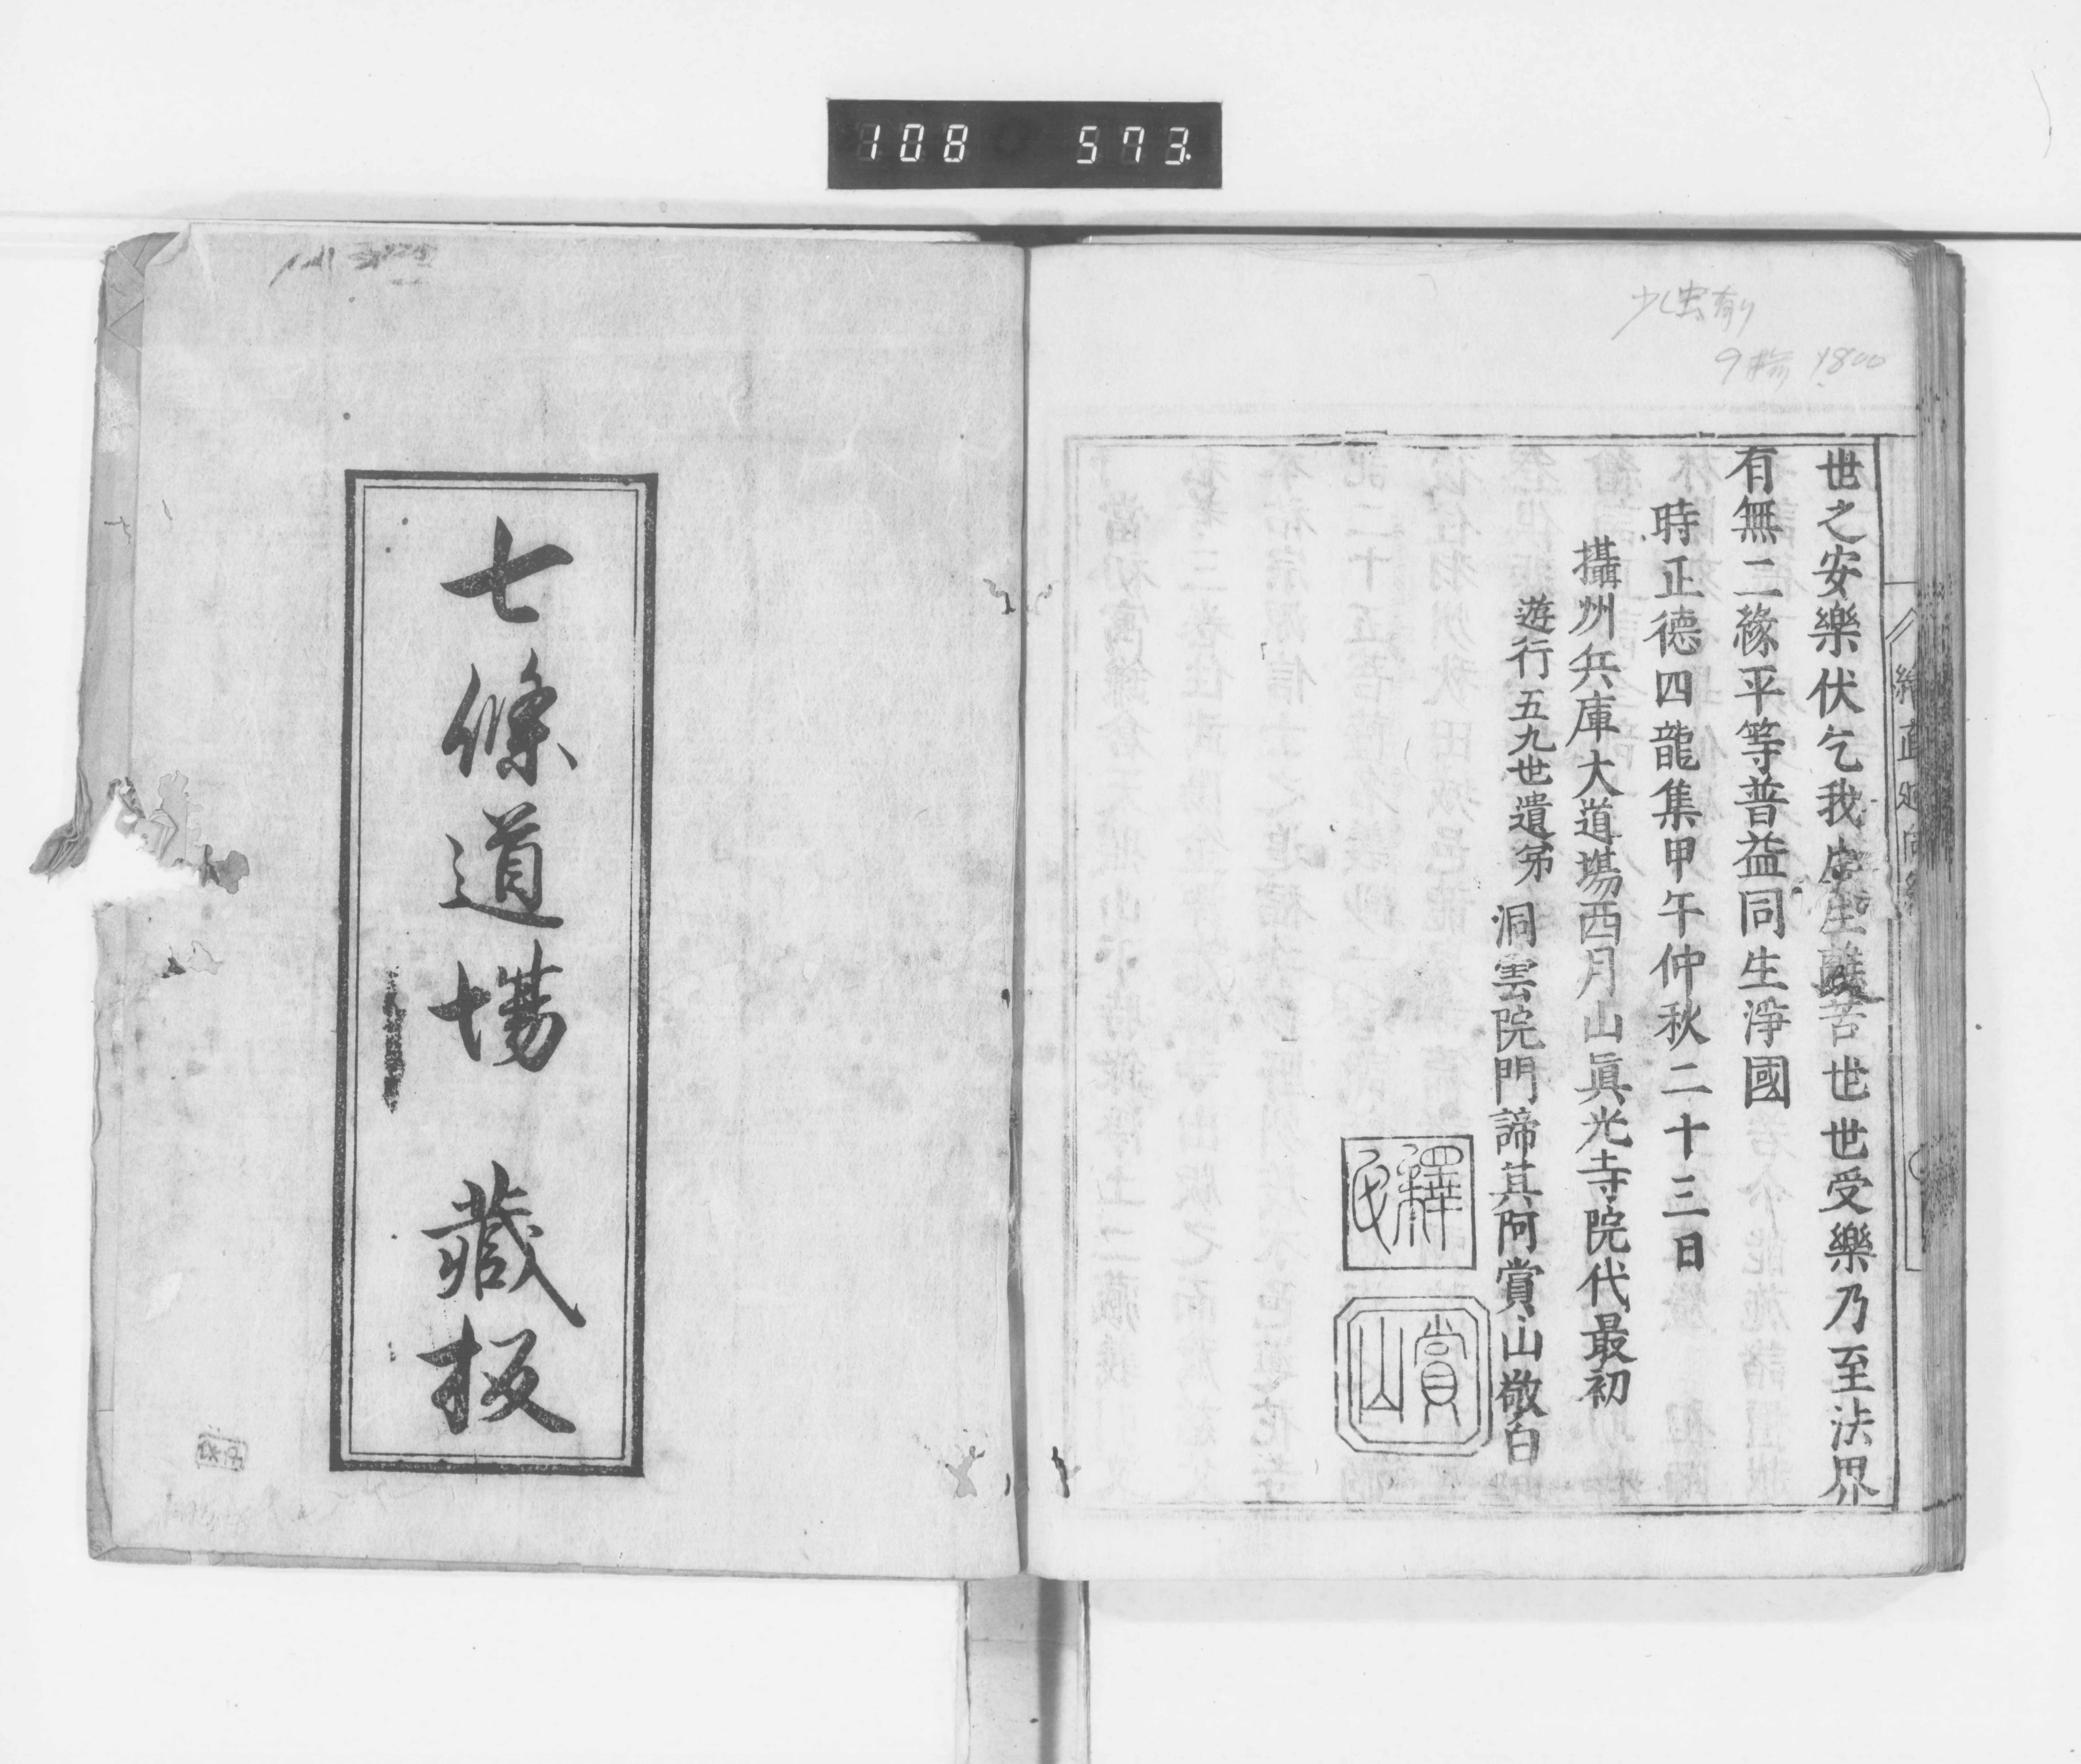 108 573.
少し虫有り
世之安樂伏乞我生生離苦世世受樂乃至法界
有無二緣平等普益同生淨國
時正德四龍集甲午仲秋二十三日
攝州兵庫大道場西月山眞光寺院代最初
遊行五九世遺弟 洞雲院門諦其阿賞山敬白
釋氏
賞山
七條道場 藏板